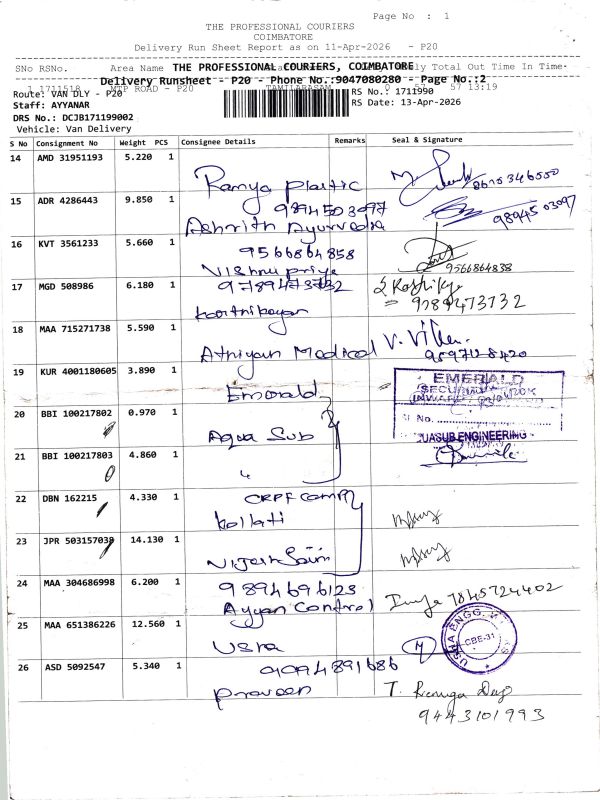 Page No : 1
THE PROFESSIONAL COURIERS
COIMBATORE
Delivery Run Sheet Report as on 11-Apr-2026 - P20
SNo RSNo. Area Name Total Out Time In Time
THE PROFESSIONAL COURIERS, COIMBATORE
Delivery Runsheet - P20 - Phone No.:9047080280 - Page No.:2
1 1711518 MTP ROAD - P20 TAMILARASAM 57 13:19
Route: VAN DLY - P20 RS No.: 1711990
Staff: AYYANAR RS Date: 13-Apr-2026
DRS No.: DCJB171199002
Vehicle: Van Delivery
S No Consignment No Weight PCS Consignee Details Remarks Seal & Signature
14 AMD 31951193 5.220 1
Ramya Plastic
15 ADR 4286443 9.850 1 9894503097 98945 03097
Ashrith Ayurvedia
16 KVT 3561233 5.660 1
9566864858 9566864838
Vishnu priya
17 MGD 508986 6.180 1 9789473732 9789473732
Karthikeyan
18 MAA 715271738 5.590 1
Athiyan Medical V. Vikn.
19 KUR 4001180605 3.890 1
Emerald EMERALD
20 BBI 100217802 0.970 1 No.
Aqua Sub AQUASUB ENGINEERING
21 BBI 100217803 4.860 1
"
22 DBN 162215 4.330 1 CRPF Comp
Kollati
23 JPR 503157038 14.130 1
24 MAA 304686998 6.200 1 9894696123 7845724402
Ayyan Control
25 MAA 651386226 12.560 1 USHA ENGG.
Usha CBE-31
26 ASD 5092547 5.340 1 9094891686
Praveen T. Renuga Devi
9443101993